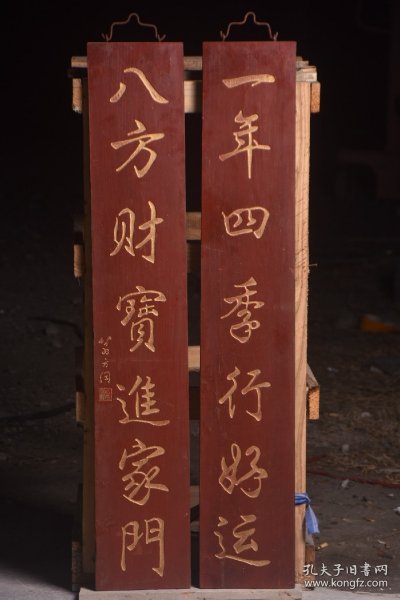 一年四季行好运
八方财寳進家門
孔夫子旧书网
www.kongfz.com